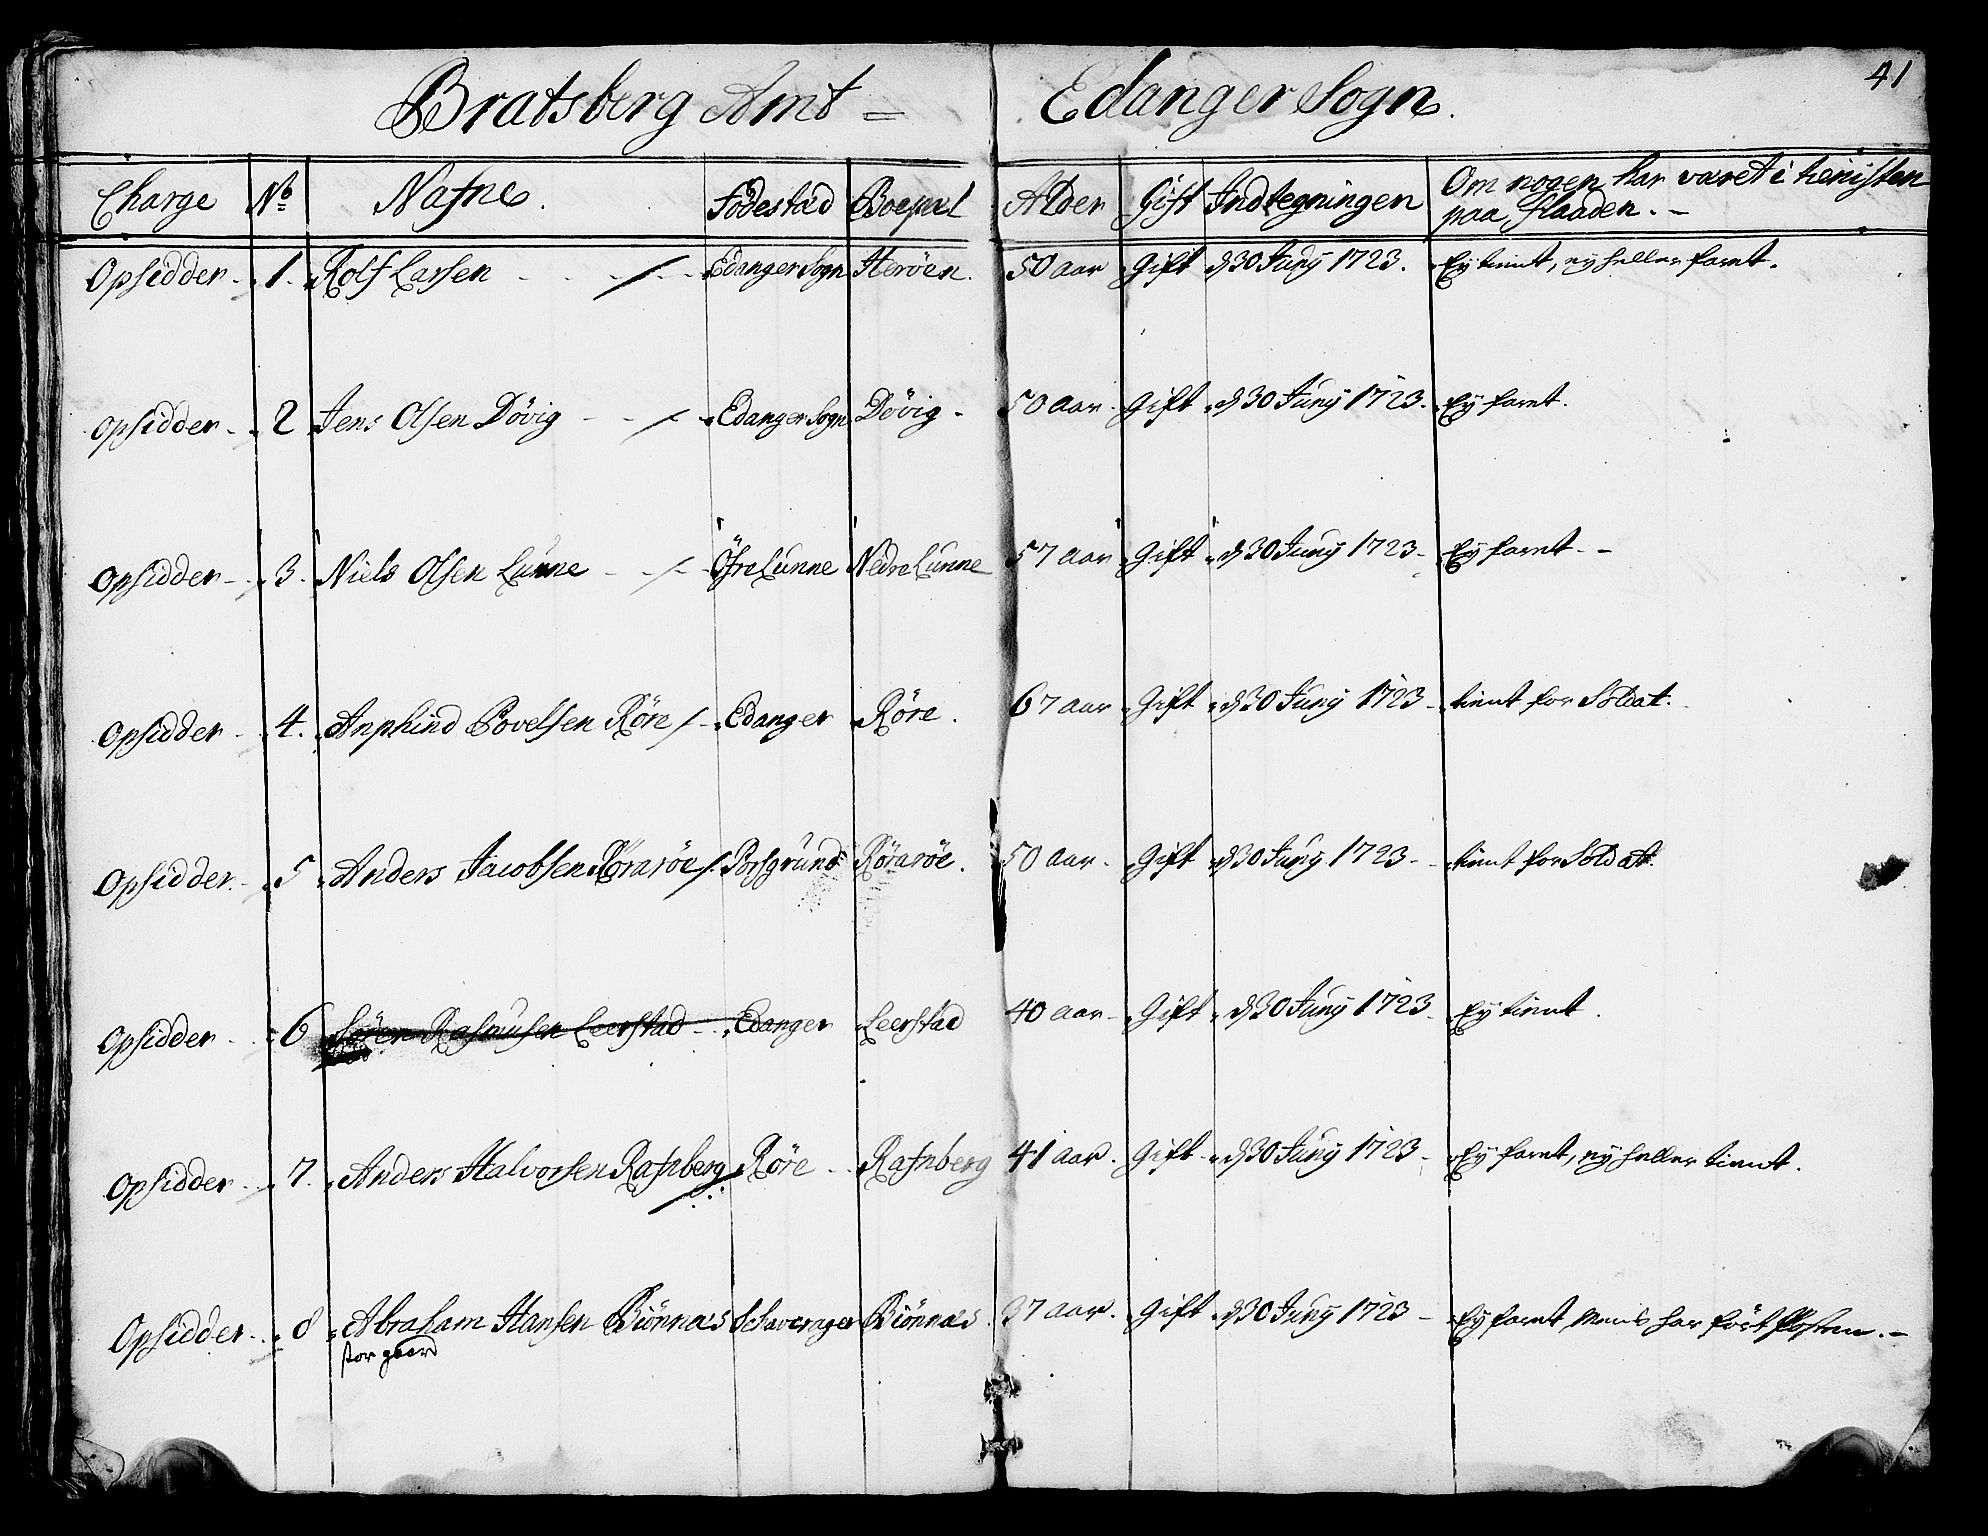 41
Bratsberg Amt = Edanger Sogn.
Charge No Nafne. Födestæd Boepæl Alder Gift Indtegningen Om nogen har været i tienisten
paa flaaden. -
Opsidder - 1. Rolf Larsen - Edanger Sogn Heröen. 50 aar Gift d 30 Junÿ 1723. Eÿ tient, eÿ heller faret.
Opsidder - 2 Jens Olsen Dövig - Edanger Sogn Dövig - 50 aar. Gift d 30 Junÿ 1723. Eÿ faret.
Opsidder - 3. Niels Olsen Lunne - Öfre Lunne Nedre Lunne 57 aar Gift d 30 Junÿ 1723 - Eÿ faret - -
Opsidder - 4. Anphind Povelsen Röre - Edanger Röre. 67 aar Gift d 30 Junÿ 1723 - tient for Soldat.
Opsidder - 5 Anders Jacobsen Röraröe Porsgrund Röraröe. 50 aar. Gift d 30 Junÿ 1723 - tient for Soldat.
Opsidder - 6 Sören Rasmusen Leerstad - Edanger Leerstad 40 aar - Gift d 30 Junÿ 1723 - Eÿ tient.
Opsidder - 7. Anders Halvorsen Rafnberg Röre - Rafnberg 41 aar. Gift - d 30 Junÿ 1723 - Eÿ faret, eÿ heller tient.
Opsidder - 8 Abraham Hansen Biönnæs Schavenger Biönnæs. 37 aar. Gift d 30 Junÿ 1723 - Eÿ faret, mens har fört Posten. -
stor gaard